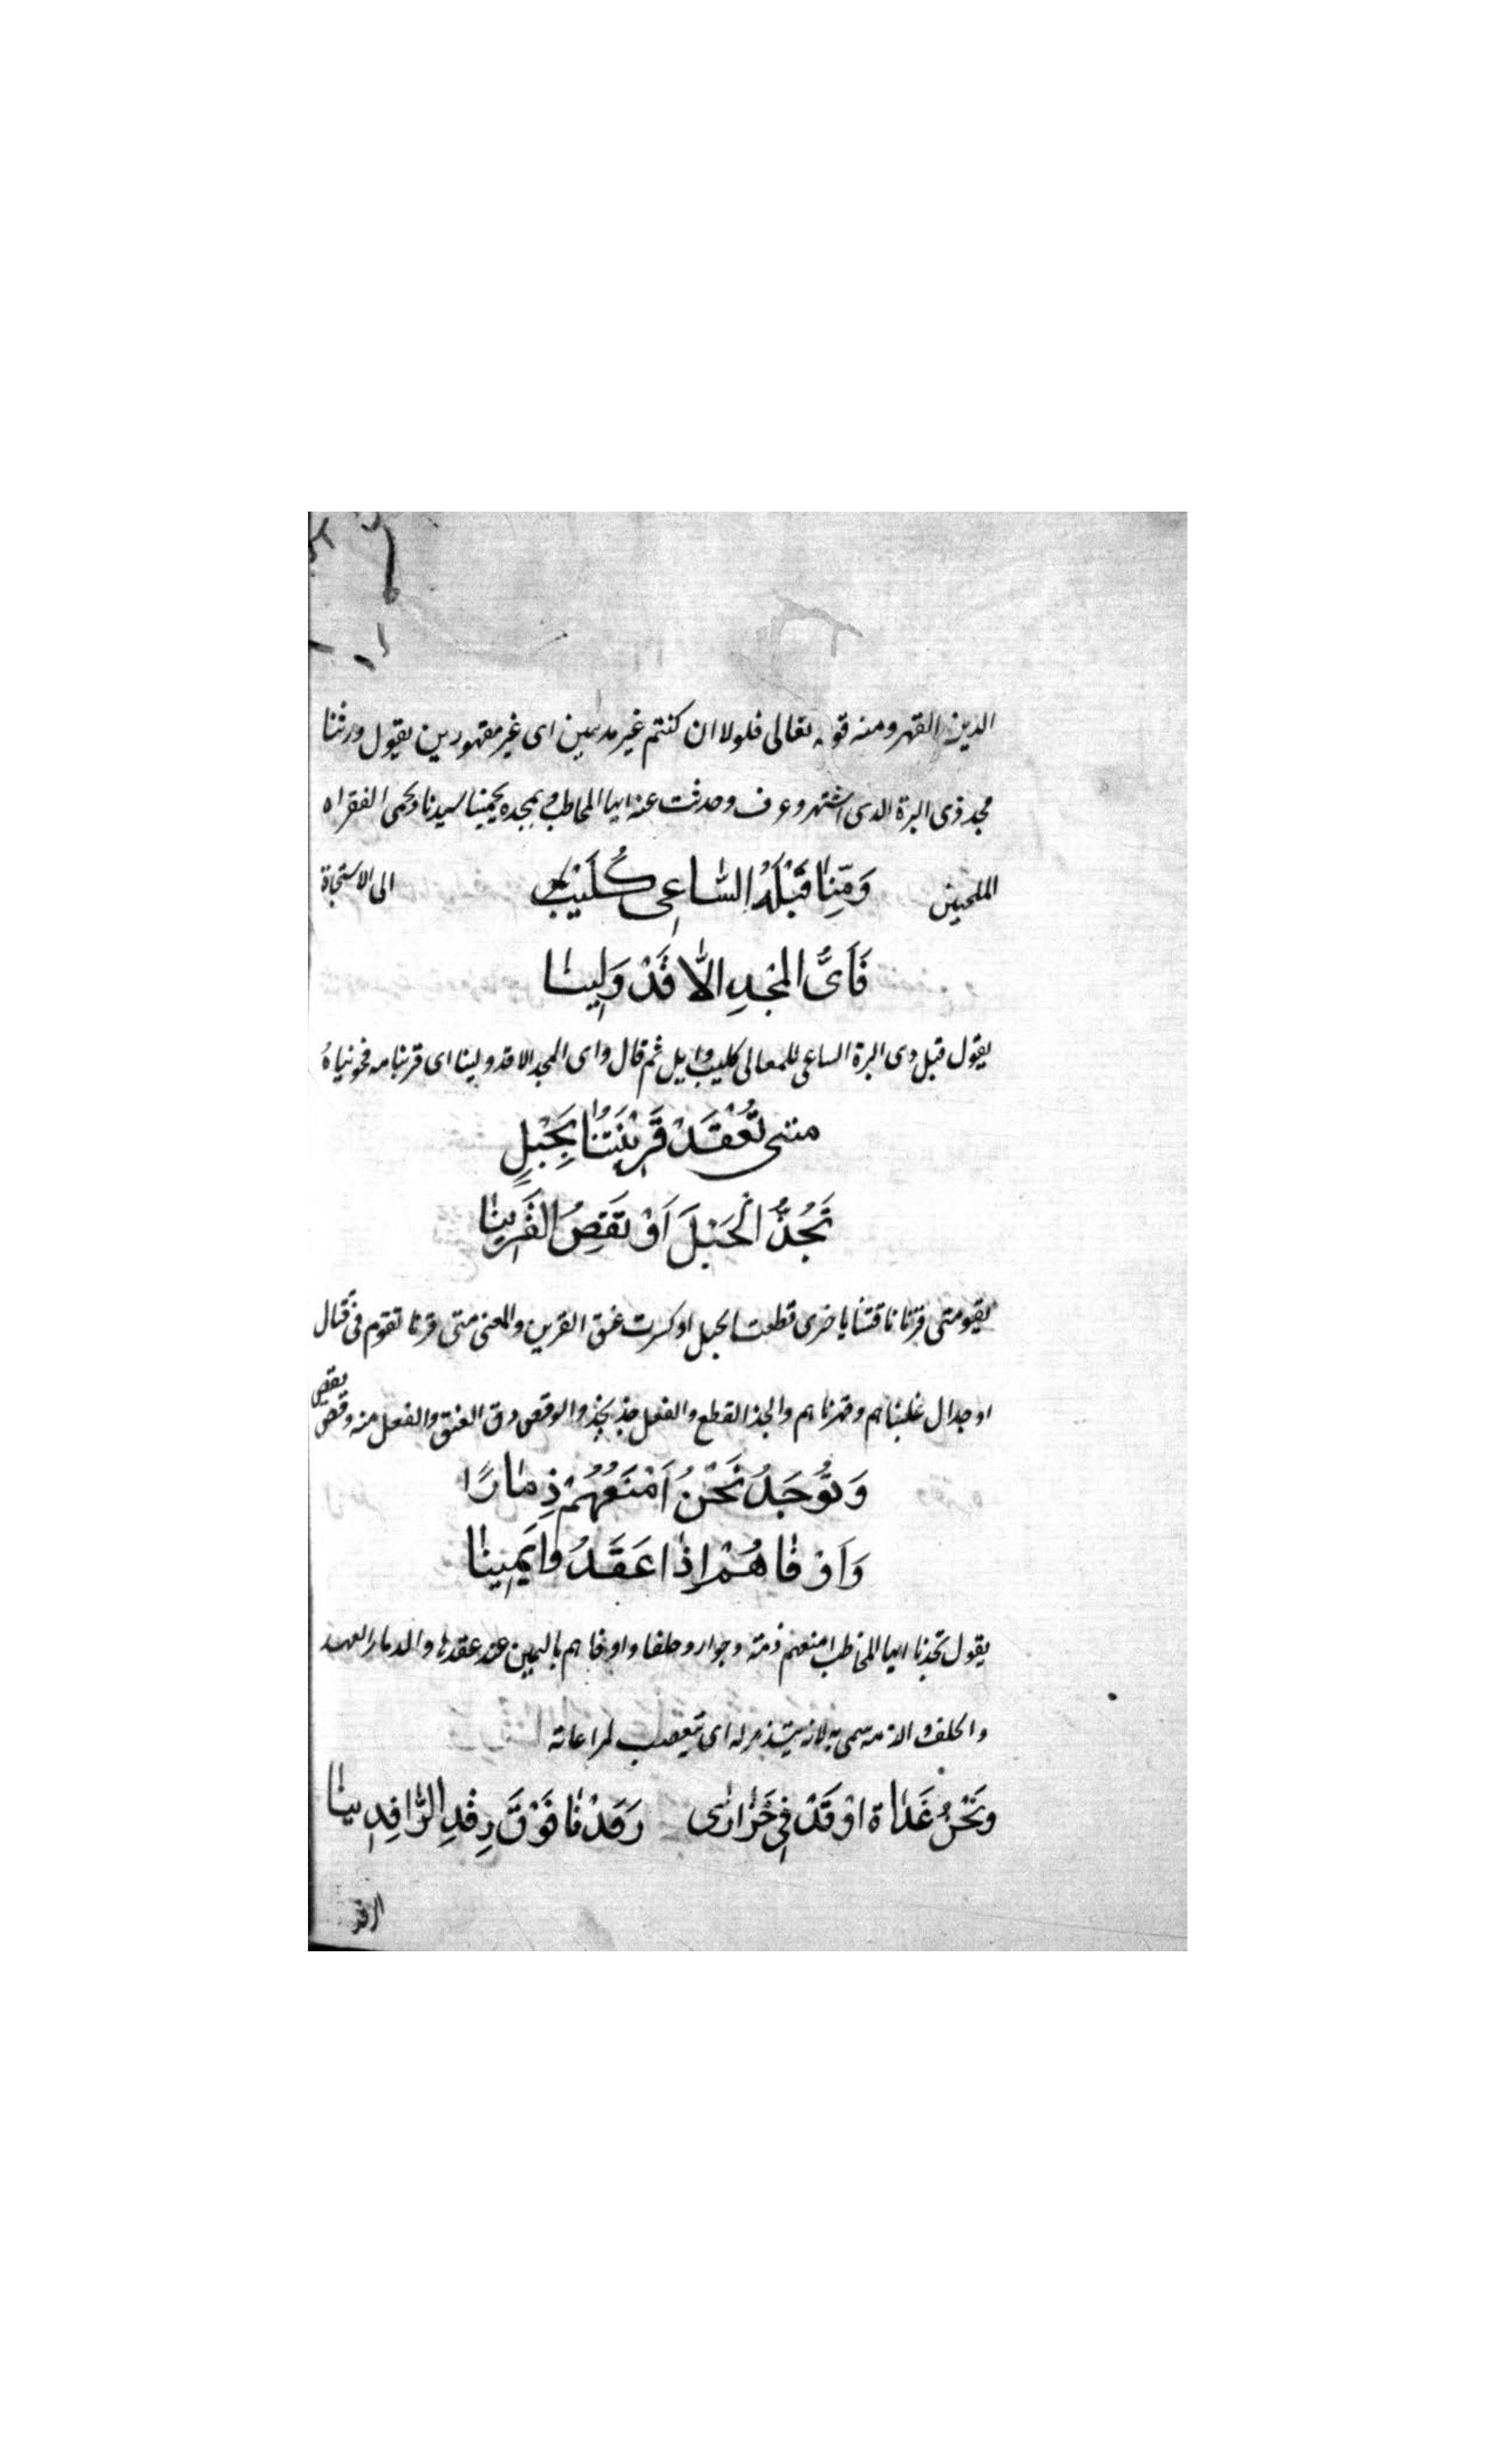 الدين القهر ومنه قوله تعالى فلولا ان كنتم غير مدينين اى غير مقهورين يقول ورثنا
مجد ذى البرة الدى اشتهر وعرف وحدثت عنه ايها المخاطب وبمجده يحمينا سيدنا وبحمى الفقراء
الملجين وَمِنّا قَبْلَهُ السَّاعِى كُلَيْبٌ الى الاستجاة
فَاَىُّ المَجْدِ اِلّا قَدْ وَلِينا
يقول قبل دى البرة الساعى للمعالى كليب وايل ثم قال واى المجد الا قد ولينا اى قربنا منه فحويناه
متى تُعْقَدْ قَرِيْنَتُنا بِحَبْلٍ
تَجُذُّ الْحَبْلَ اَوْ تَقِصُ القَرِينا
يقو متى قرنا ناقتنا باخرى قطعت الحبل او كسرت عنق القرين والمعنى متى قرنا تقوم فى قتال
او جدال غلبناهم وقهرناهم والجذ القطع والفعل جذ يجذ والوقص دق العنق والفعل منه وقص يقص
وَنُوْجَدُ نَحْنُ اَمْنَعُهُمْ ذِمَارًا
وَاَوْفَاهُمْ اِذَا عَقَدُوا يَمِينا
يقول تجدنا ايها المخاطب امنعهم ذمته وجوار وحلفا واوفاهم باليمين عند عقدها والدمار العهد
والحلف والذمه سمى به لانه يتذمر له اى يتعصب لمراعاته
وَنَحْنُ غَدَاةَ اوْقَدْ فِي خَزَازى رَفَدْنَا فَوْقَ رِفْدِ الرَّافِدِينا
الرفد